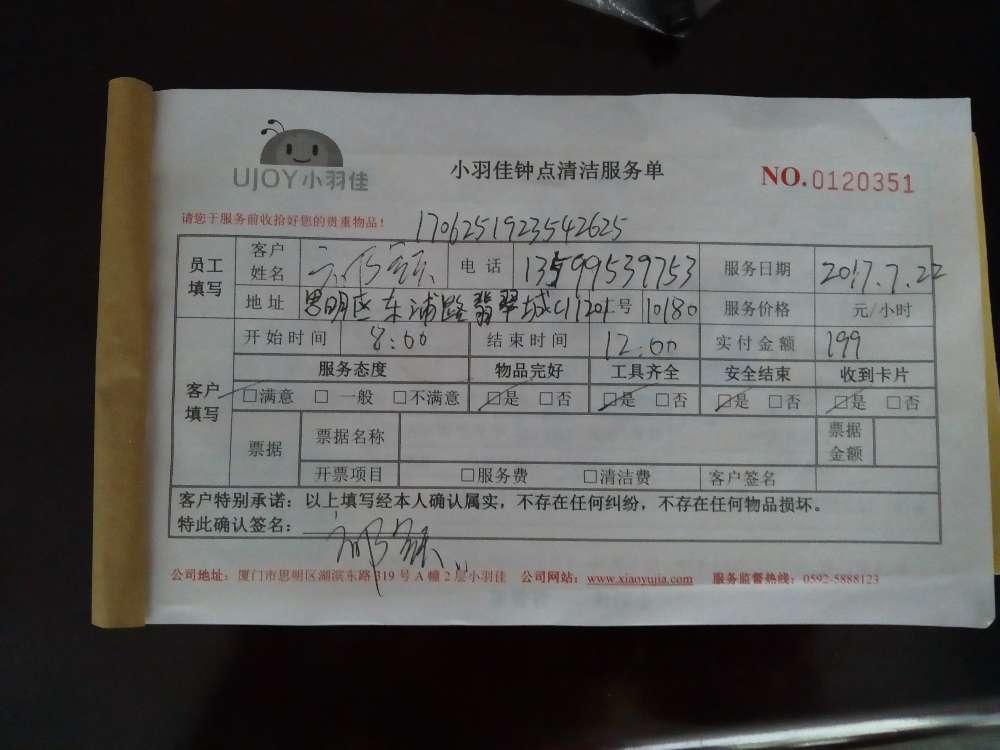 UJOY小羽佳
小羽佳钟点清洁服务单
NO.0120351
请您于服务前收拾好您的贵重物品!
1706251923542625
员工填写 客户姓名 电话 13599539753 服务日期 2017.7.22
地址 思明区东浦路翡翠城C11201号 10180 服务价格 元/小时
客户填写 开始时间 8:00 结束时间 12:00 实付金额 199
服务态度 物品完好 工具齐全 安全结束 收到卡片
□满意 □一般 □不满意 □是 □否 □是 □否 □是 □否 □是 □否
票据 票据名称 票据金额
开票项目 □服务费 □清洁费 客户签名
客户特别承诺:以上填写经本人确认属实,不存在任何纠纷,不存在任何物品损坏。
特此确认签名:
公司地址:厦门市思明区湖滨东路319号A幢2层小羽佳 公司网站:www.xiaoyujia.com 服务监督热线:0592-5888123